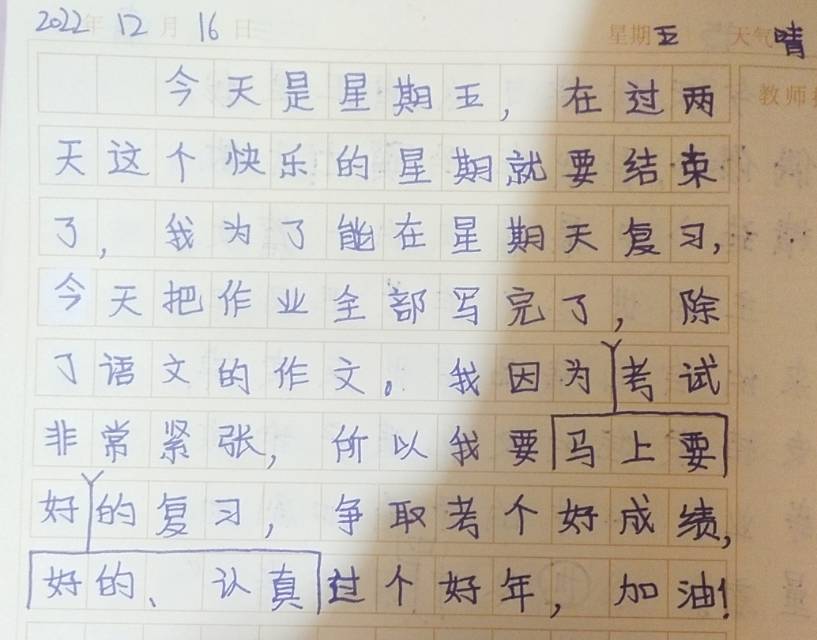 2022年 12月 16日 星期五 天气晴
今天是星期五，在过两
教师
天这个快乐的星期就要结束
了，我为了能在星期天复习，
今天把作业全部写完了，除
了语文的作文。我因为考试
非常紧张，所以我要马上要
好的复习，争取考个好成绩，
好的、认真过个好年，加油！